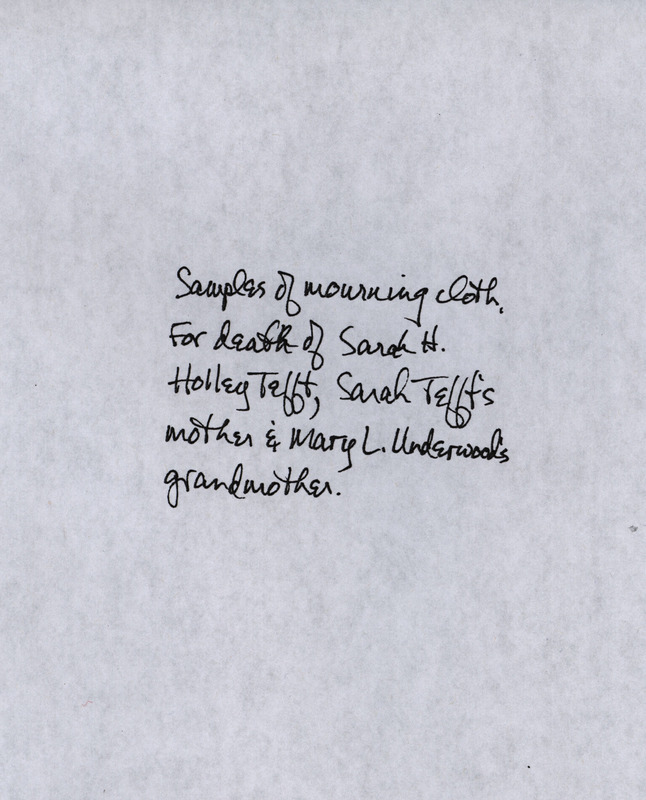 Samples of mourning cloth.
For death of Sarah H.
Holley Tefft, Sarah Tefft's
mother & Mary L. Underwood's
grandmother.